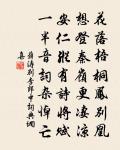 花落梧桐鳳別凰
想登秦嶺更凄涼
安仁縱有詩將賦
一半音詞雜悼亡
薛濤別李郎中詞典網
集